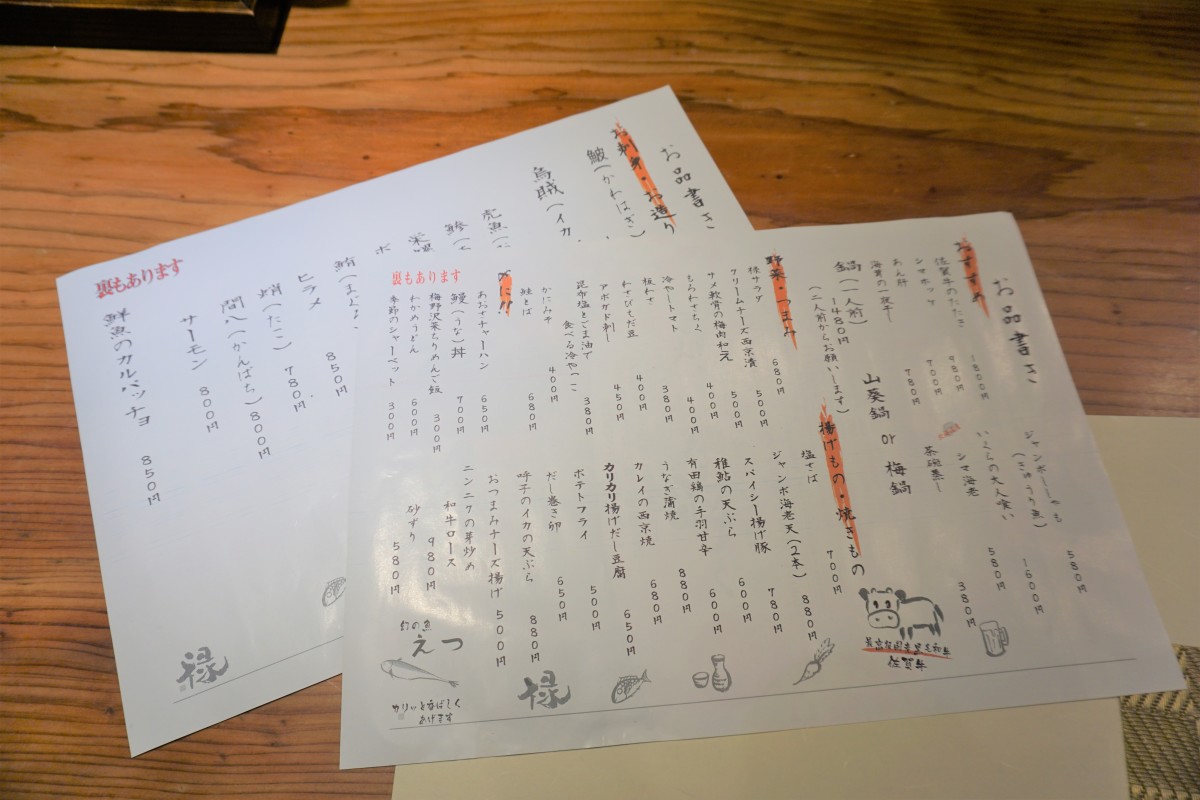 お品書き
おすすめ
佐賀牛のたたき 1800円
シマホッケ 980円
あん肝 700円
海茸の一夜干し 780円
鍋(一人前)
1480円
(二人前からお願いします)
山葵鍋 or 梅鍋
ジャンボししゃも 580円
(きゅうり魚) 1600円
いくらの大人食い 580円
シマ海老 380円
茶碗蒸し
野菜・つまみ
棒サラダ 680円
クリームチーズ西京漬 500円
サメ軟骨の梅肉和え 500円
もろみきゅうり 400円
冷やしトマト 400円
板わさ 380円
わさびもだ豆 400円
アボカド刺し 450円
昆布塩とごま油で
食べる冷やっこ 380円
かにみそ 400円
鮭とば 680円
〆に!!
あおさチャーハン 650円
鰻(うな)丼 700円
梅野沢菜ちりめんご飯 300円
わかめうどん 600円
季節のシャーベット 300円
裏もあります
揚げもの・焼きもの
塩さば 700円
ジャンボ海老天(2本) 880円
スパイシー揚げ豚 780円
稚鮎の天ぷら 600円
有田鶏の手羽甘辛 600円
うなぎ蒲焼 880円
カレイの西京焼 680円
カリカリ揚げだし豆腐 650円
ポテトフライ 500円
だし巻き卵 650円
呼子のイカの天ぷら 880円
おつまみチーズ揚げ 500円
ニンニクの芽炒め
和牛ロース 980円
砂ずり 580円
佐賀牛
幻の魚
えつ
カリッと香ばしく
あげます
禄
お品書き
お刺身・お造り
鮍(かわはぎ)
烏賊(イカ
虎魚(
鰺(
栄螺
ホ
鮪(まぐろ) 850円
ヒラメ
蛸(たこ) 780円
間八(かんぱち) 800円
サーモン 800円
鮮魚のカルパッチョ 850円
裏もあります
禄